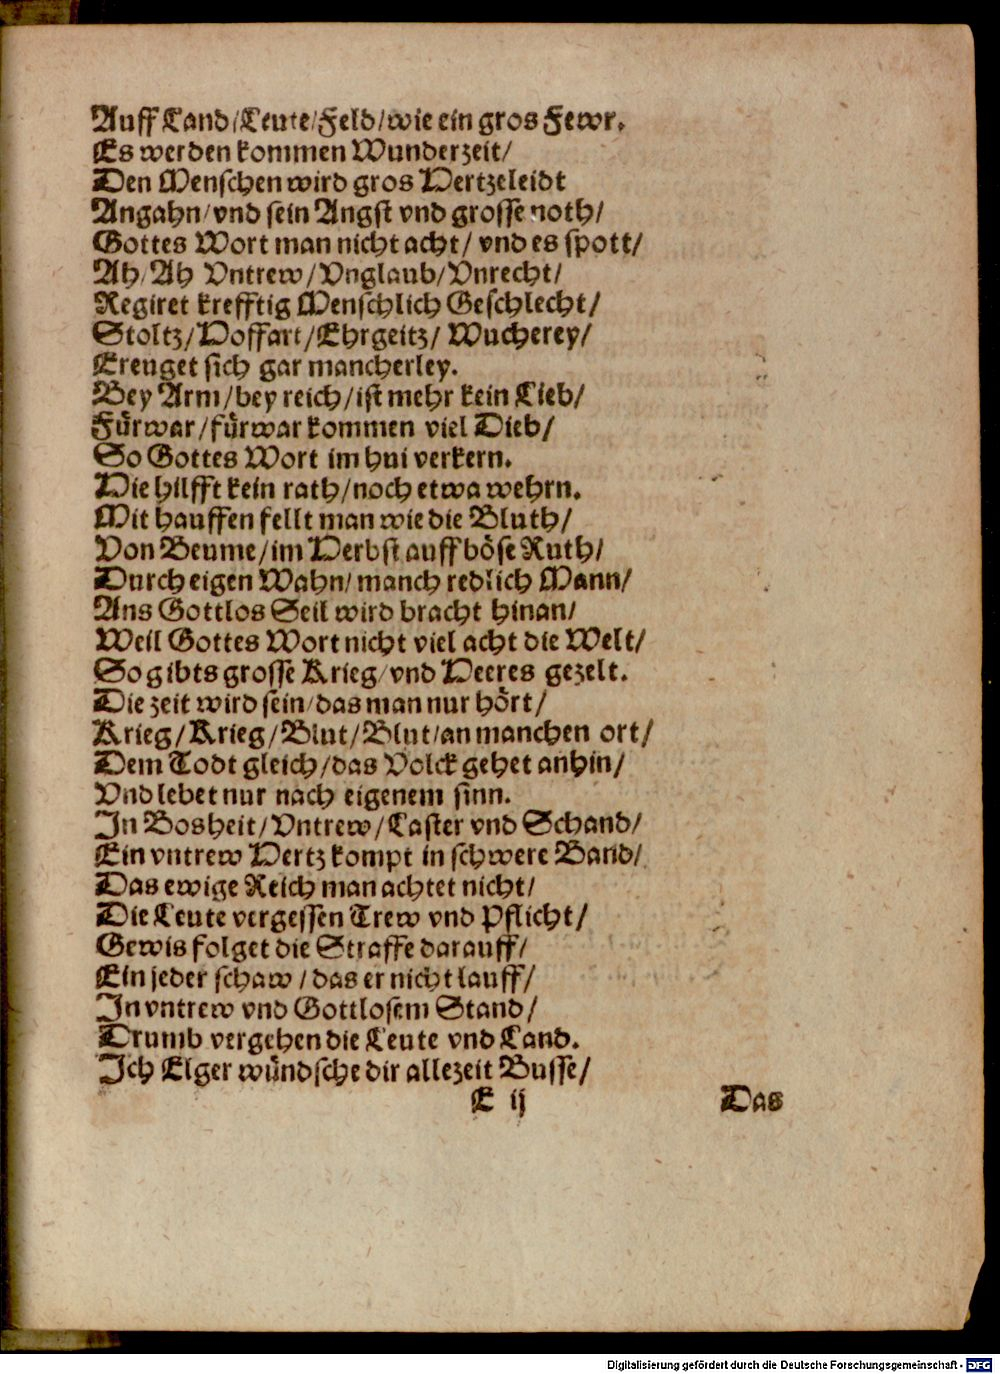 Auff Land/Leute/Feld/wie ein gros Fewr.
Es werden kommen Wunderzeit/
Den Menschen wird gros Hertzeleidt
Angahn/vnd sein Angst vnd grosse noth/
Gottes Wort man nicht acht/ vnd es spott/
Ah/Ah Vntrew/Vnglaub/Vnrecht/
Regiret krefftig Menschlich Geschlecht/
Stoltz/Hoffart/Ehrgeitz/ Wucherey/
Ereuget sich gar mancherley.
Bey Arm/bey reich/ist mehr kein Lieb/
Fürwar/fürwar kommen viel Dieb/
So Gottes Wort im hui verkern.
Hie hilfft kein rath/noch etwa wehrn.
Mit hauffen fellt man wie die Bluth/
Von Beume/im Herbst auff böse Ruth/
Durch eigen Wahn/manch redlich Mann/
Ans Gottlos Seil wird bracht hinan/
Weil Gottes Wort nicht viel acht die Welt/
So gibts grosse Krieg/vnd Heeres gezelt.
Die zeit wird sein/das man nur hört/
Krieg/Krieg/Blut/Blut/an manchen ort/
Dem Todt gleich/das Volck gehet anhin/
Vnd lebet nur nach eigenem sinn.
In Bosheit/Vntrew/Laster vnd Schand/
Ein vntrew Hertz kompt in schwere Band/
Das ewige Reich man achtet nicht/
Die Leute vergessen Trew vnd Pflicht/
Gewis folget die Straffe darauff/
Ein jeder schaw/das er nicht lauff/
In vntrew vnd Gottlosem Stand/
Drumb vergehen die Leute vnd Land.
Ich Elger wündsche dir allezeit Busse/
E ij Das
Digitalisierung gefördert durch die Deutsche Forschungsgemeinschaft - DFG